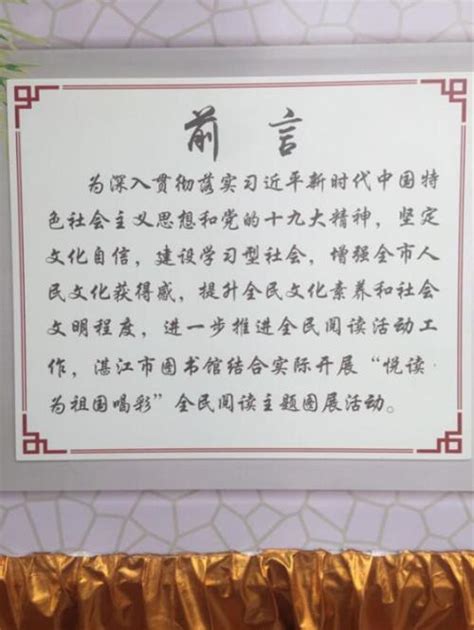 前言
为深入贯彻落实习近平新时代中国特
色社会主义思想和党的十九大精神，坚定
文化自信，建设学习型社会，增强全市人
民文化获得感，提升全民文化素养和社会
文明程度，进一步推进全民阅读活动工
作，湛江市图书馆结合实际开展“悦读·
为祖国喝彩”全民阅读主题图展活动。